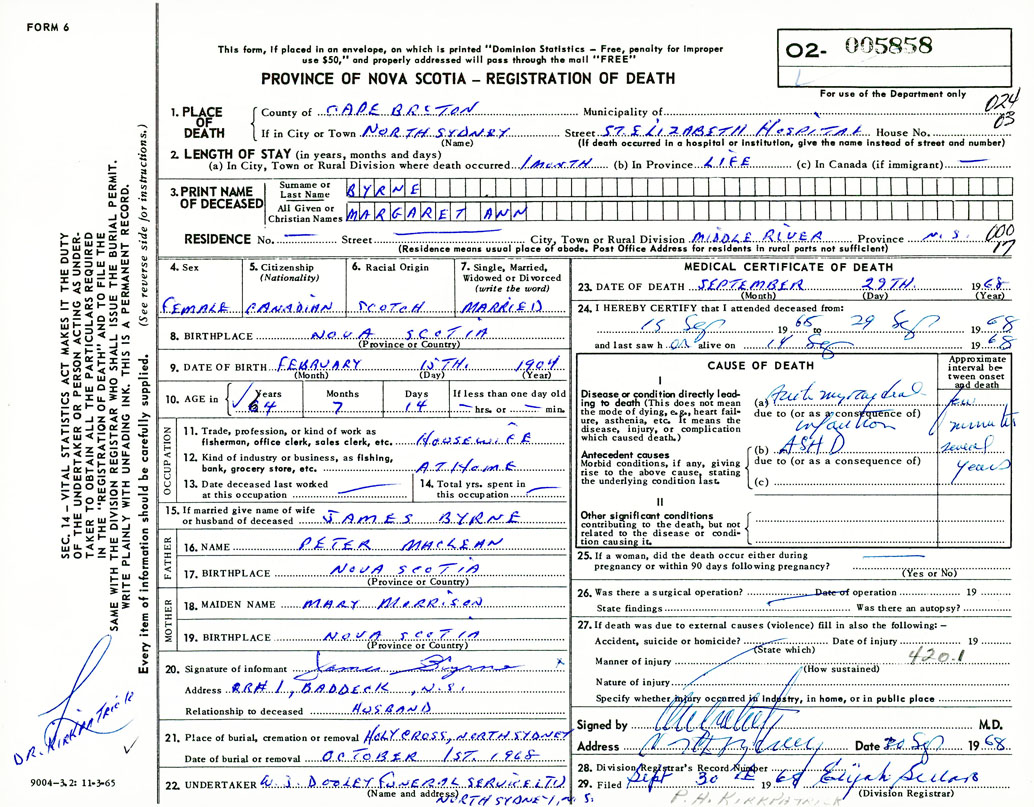 FORM 6
This form, if placed in an envelope, on which is printed "Dominion Statistics – Free, penalty for improper
use $50," and properly addressed will pass through the mail "FREE"
PROVINCE OF NOVA SCOTIA – REGISTRATION OF DEATH
02- 005858
For use of the Department only
024
03
1. PLACE OF DEATH
County of CAPE BRETON Municipality of
If in City or Town NORTH SYDNEY Street ST. ELIZABETH HOSPITAL House No.
(Name) (If death occurred in a hospital or institution, give the name instead of street and number)
2. LENGTH OF STAY (in years, months and days)
(a) In City, Town or Rural Division where death occurred 1 MONTH (b) In Province LIFE (c) In Canada (if immigrant) —
3. PRINT NAME OF DECEASED
Surname or Last Name BYRNE
All Given or Christian Names MARGARET ANN
RESIDENCE No. — Street — City, Town or Rural Division MIDDLE RIVER Province N.S.
(Residence means usual place of abode. Post Office Address for residents in rural parts not sufficient)
000
17
4. Sex
FEMALE
5. Citizenship
(Nationality)
CANADIAN
6. Racial Origin
SCOTCH
7. Single, Married,
Widowed or Divorced
(write the word)
MARRIED
8. BIRTHPLACE NOVA SCOTIA
(Province or Country)
9. DATE OF BIRTH FEBRUARY 15TH. 1904
(Month) (Day) (Year)
10. AGE in Years Months Days If less than one day old
64 7 14 hrs. or min.
OCCUPATION
11. Trade, profession, or kind of work as
fisherman, office clerk, sales clerk, etc. HOUSEWIFE
12. Kind of industry or business, as fishing,
bank, grocery store, etc. AT HOME
13. Date deceased last worked
at this occupation —
14. Total yrs. spent in
this occupation —
15. If married give name of wife
or husband of deceased JAMES BYRNE
FATHER
16. NAME PETER MACLEAN
17. BIRTHPLACE NOVA SCOTIA
(Province or Country)
MOTHER
18. MAIDEN NAME MARY MORRISON
19. BIRTHPLACE NOVA SCOTIA
(Province or Country)
20. Signature of informant James Byrne x
Address RR#1, BADDECK, N.S.
Relationship to deceased HUSBAND
21. Place of burial, cremation or removal HOLY CROSS, NORTH SYDNEY
Date of burial or removal OCTOBER 1ST. 1968
22. UNDERTAKER W. J. DOOLEY FUNERAL SERVICE LTD
(Name and address) NORTH SYDNEY, N.S.
MEDICAL CERTIFICATE OF DEATH
23. DATE OF DEATH SEPTEMBER 29TH. 1968
(Month) (Day) (Year)
24. I HEREBY CERTIFY that I attended deceased from:
15 Sep 1965 to 29 Sep 1968
and last saw her alive on 14 Sep 1968
CAUSE OF DEATH
Approximate
interval be-
tween onset
and death
I
Disease or condition directly lead-
ing to death (This does not mean
the mode of dying, e.g., heart fail-
ure, asthenia, etc. It means the
disease, injury, or complication
which caused death.)
(a) Acute myocardial
due to (or as a consequence of)
infarction
few
minutes
Antecedent causes
Morbid conditions, if any, giving
rise to the above cause, stating
the underlying condition last.
(b) ASHD
due to (or as a consequence of)
(c)
several
years
II
Other significant conditions
contributing to the death, but not
related to the disease or condi-
tion causing it.
25. If a woman, did the death occur either during
pregnancy or within 90 days following pregnancy? —
(Yes or No)
26. Was there a surgical operation? Date of operation 19
State findings Was there an autopsy?
27. If death was due to external causes (violence) fill in also the following: –
Accident, suicide or homicide? Date of injury 19
(State which)
Manner of injury 420.1
(How sustained)
Nature of injury
Specify whether injury occurred in industry, in home, or in public place
Signed by M.D.
Address North Sydney Date 30 Sep 1968
28. Division Registrar's Record Number
29. Filed Sept 30th 1968 Elijah Sellars
(Division Registrar)
P. H. KIRKPATRICK
SEC. 14 – VITAL STATISTICS ACT MAKES IT THE DUTY
OF THE UNDERTAKER OR PERSON ACTING AS UNDER-
TAKER TO OBTAIN ALL THE PARTICULARS REQUIRED
IN THE "REGISTRATION OF DEATH" AND TO FILE THE
SAME WITH THE DIVISION REGISTRAR WHO SHALL ISSUE THE BURIAL PERMIT.
WRITE PLAINLY WITH UNFADING INK. THIS IS A PERMANENT RECORD.
Every item of information should be carefully supplied. (See reverse side for instructions.)
DR. KIRKPATRICK
9004–3.2: 11-3-65